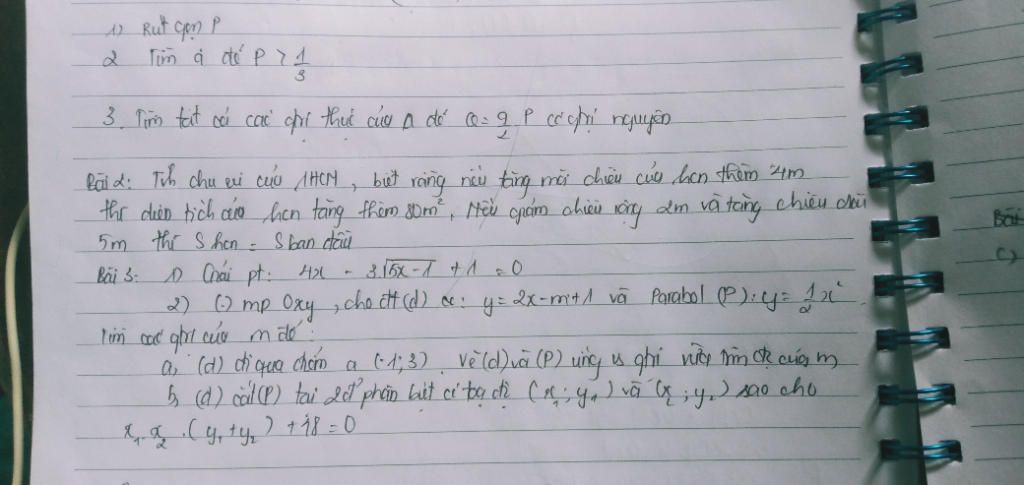 1) Rút gọn P
2 Tìm a để P > 1/3
3. Tìm tất cả các gtrị thực của a để Q = 9/2 P có gtrị nguyên
Bài 2: Tính chu vi của 1HCN, biết rằng nếu tăng mỗi chiều của hcn thêm 4m
thì diện tích của hcn tăng thêm 80m², Nếu giảm chiều rộng 2m và tăng chiều dài
5m thì S hcn = S ban đầu
Bài 3: 1) Giải pt: 4x - 3√(5x-1) + 1 = 0
2) () mp Oxy, cho đt (d) : y = 2x-m+1 và Parabol (P): y = 1/2 x²
Tìm các gtrị của m để:
a, (d) đi qua điểm a (-1; 3). Vẽ (d) và (P) ứng vs gtrị vừa tìm của m
b, (d) cắt (P) tại 2đ' phân biệt có tọa độ (x₁; y₁) và (x₂; y₂) sao cho
x₁.x₂.(y₁+y₂) + 48 = 0
Bài
c)